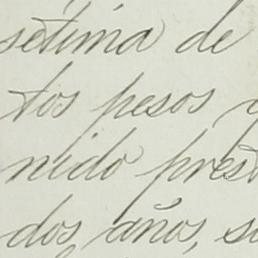 sétima de
tos pesos y
nido prest
dos años, s